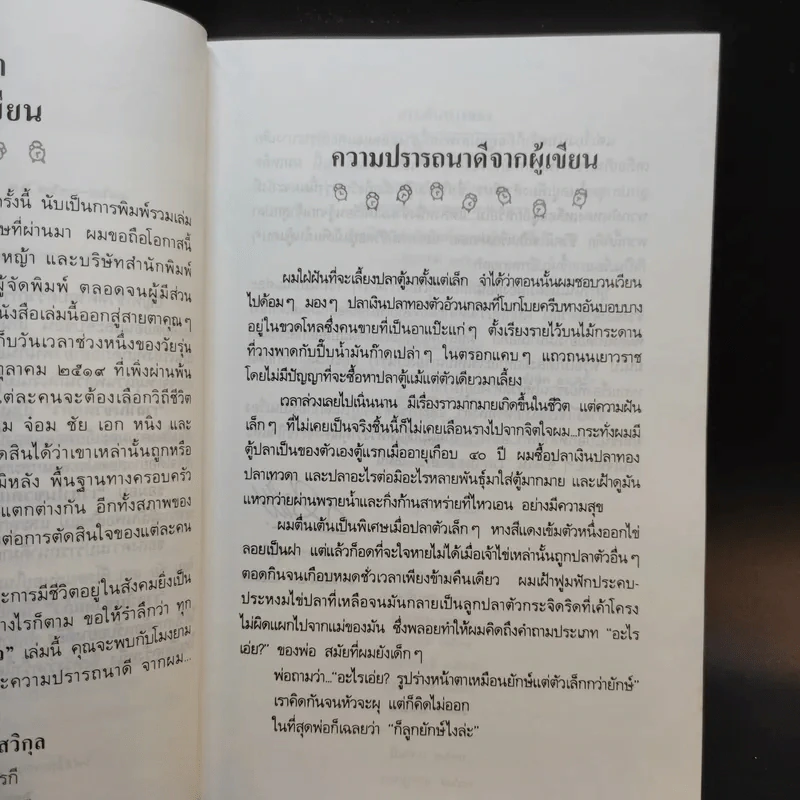 า
ขียน
รั้งนี้ นับเป็นการพิมพ์รวมเล่ม
ษที่ผ่านมา ผมขอถือโอกาสนี้
หญ้า และบริษัทสำนักพิมพ์
ผู้จัดพิมพ์ ตลอดจนผู้มีส่วน
นังสือเล่มนี้ออกสู่สายตาคุณๆ
ก็บวันเวลาช่วงหนึ่งของวัยรุ่น
ตุลาคม ๒๕๑๙ ที่เพิ่งผ่านพ้น
แต่ละคนจะต้องเลือกวิถีชีวิต
ม จ๋อม ชัย เอก หนิง และ
ดสินได้ว่าเขาเหล่านั้นถูกหรือ
มิหลัง พื้นฐานทางครอบครัว
แตกต่างกัน อีกทั้งสภาพของ
ต่อการตัดสินใจของแต่ละคน
ะการมีชีวิตอยู่ในสังคมยิ่งเป็น
างไรก็ตาม ขอให้รำลึกว่า ทุก
า" เล่มนี้ คุณจะพบกับโมงยาม
ะความปรารถนาดี จากผม...
สวิกุล
รกี
ความปรารถนาดีจากผู้เขียน
ผมใฝ่ฝันที่จะเลี้ยงปลาตู้มาตั้งแต่เล็ก จำได้ว่าตอนนั้นผมชอบวนเวียน
ไปด้อมๆ มองๆ ปลาเงินปลาทองตัวอ้วนกลมที่โบกโบยครีบหางอันบอบบาง
อยู่ในขวดโหลซึ่งคนขายที่เป็นอาแป๊ะแก่ๆ ตั้งเรียงรายไว้บนไม้กระดาน
ที่วางพาดกับปี๊บน้ำมันก๊าดเปล่าๆ ในตรอกแคบๆ แถวถนนเยาวราช
โดยไม่มีปัญญาที่จะซื้อหาปลาตู้แม้แต่ตัวเดียวมาเลี้ยง
เวลาล่วงเลยไปเนิ่นนาน มีเรื่องราวมากมายเกิดขึ้นในชีวิต แต่ความฝัน
เล็กๆ ที่ไม่เคยเป็นจริงชิ้นนี้ก็ไม่เคยเลือนรางไปจากจิตใจผม...กระทั่งผมมี
ตู้ปลาเป็นของตัวเองตู้แรกเมื่ออายุเกือบ ๔๐ ปี ผมซื้อปลาเงินปลาทอง
ปลาเทวดา และปลาอะไรต่อมิอะไรหลายพันธุ์มาใส่ตู้มากมาย และเฝ้าดูมัน
แหวกว่ายผ่านพรายน้ำและกิ่งก้านสาหร่ายที่ไหวเอน อย่างมีความสุข
ผมตื่นเต้นเป็นพิเศษเมื่อปลาตัวเล็กๆ หางสีแดงเข้มตัวหนึ่งออกไข่
ลอยเป็นฝา แต่แล้วก็อดที่จะใจหายไม่ได้เมื่อเจ้าไข่เหล่านั้นถูกปลาตัวอื่นๆ
ตอดกินจนเกือบหมดชั่วเวลาเพียงข้ามคืนเดียว ผมเฝ้าฟูมฟักประคบ-
ประหงมไข่ปลาที่เหลือจนมันกลายเป็นลูกปลาตัวกระจิดริดที่เค้าโครง
ไม่ผิดแผกไปจากแม่ของมัน ซึ่งพลอยทำให้ผมคิดถึงคำถามประเภท "อะไร
เอ่ย?" ของพ่อ สมัยที่ผมยังเด็กๆ
พ่อถามว่า..."อะไรเอ่ย? รูปร่างหน้าตาเหมือนยักษ์แต่ตัวเล็กกว่ายักษ์"
เราคิดกันจนหัวจะผุ แต่ก็คิดไม่ออก
ในที่สุดพ่อก็เฉลยว่า "ก็ลูกยักษ์ไงล่ะ"